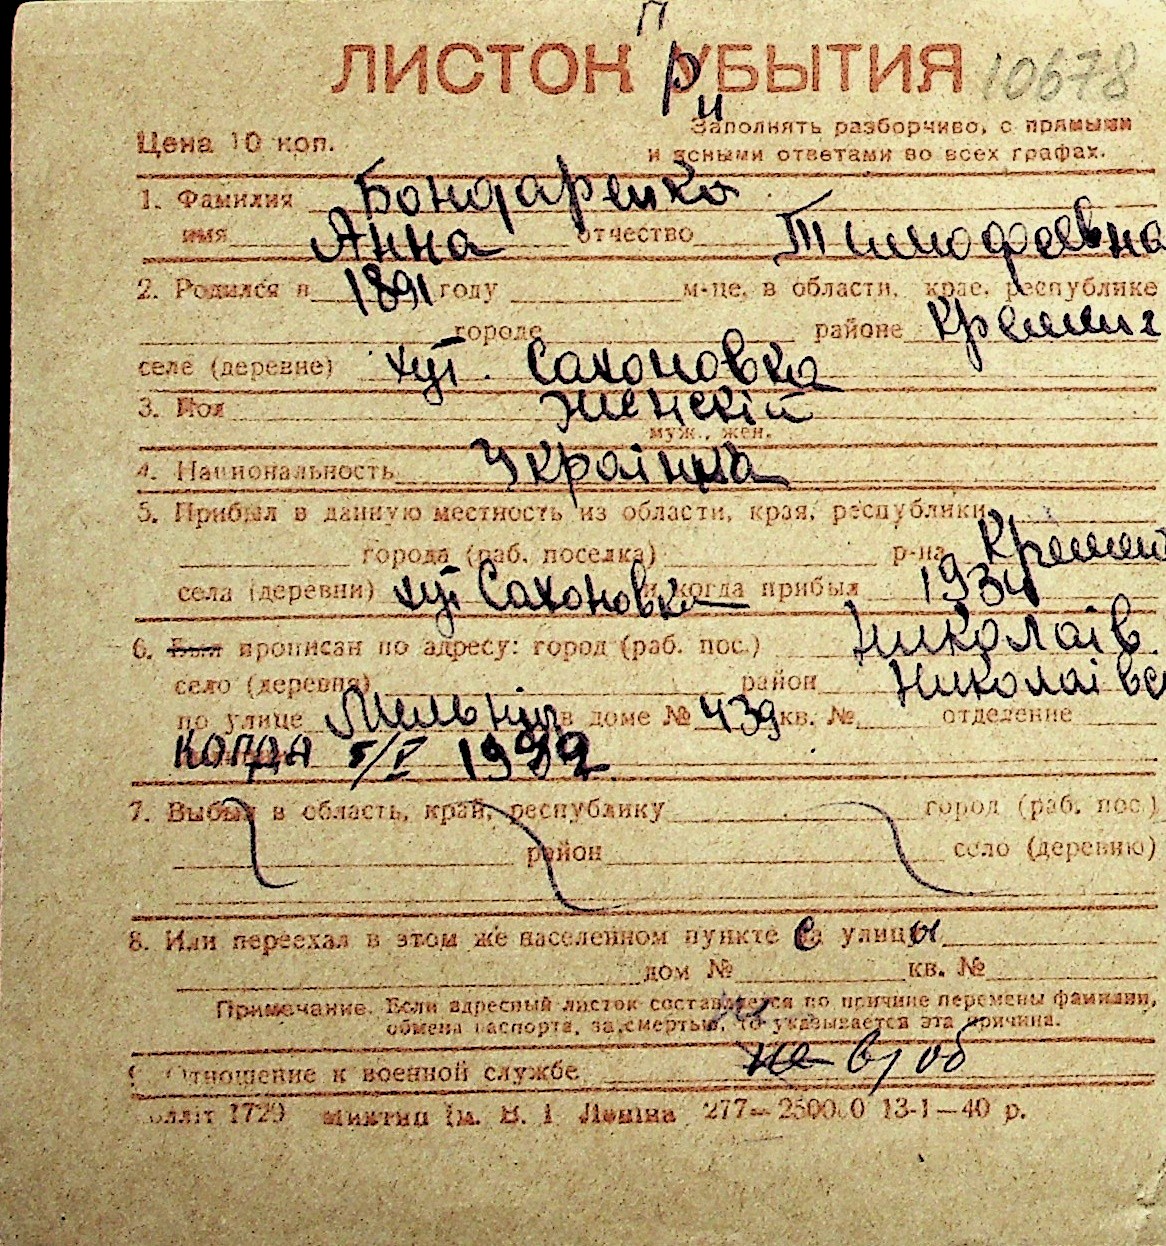 ЛИСТОК При УБЫТИЯ 10678
Цена 10 коп.
Заполнять разборчиво, с прямыми
и ясными ответами во всех графах.
1. Фамилия Бондаренко
имя Анна отчество Тимофеевна
2. Родился в 1891 году м-це, в области, крае, республике
городе районе Кремин
селе (деревне) хут. Сахоновка
3. Пол женскій
муж., жен.
4. Национальность Украінка
5. Прибыл в данную местность из области, края, республики
города (раб. поселка) р-на Кремин
села (деревни) хут Сахоновка и когда прибыл 1934
6. Был прописан по адресу: город (раб. пос.) Николаів
село (деревня) район Николаівс
по улице в доме № 439 кв. № отделение
КОГДА 5/V 1942
7. Выбыл в область, край, республику город (раб. пос.)
район село (деревню)
8. Или переехал в этом же населенном пункте с улицы
дом № кв. №
Примечание. Если адресный листок составляется по причине перемены фамилии,
обмена паспорта, за смертью, то указывается эта причина.
Отношение к военной службе не в/об
1720 Миктип ім. В. І. Леніна 277—25000.0 13-1—40 р.